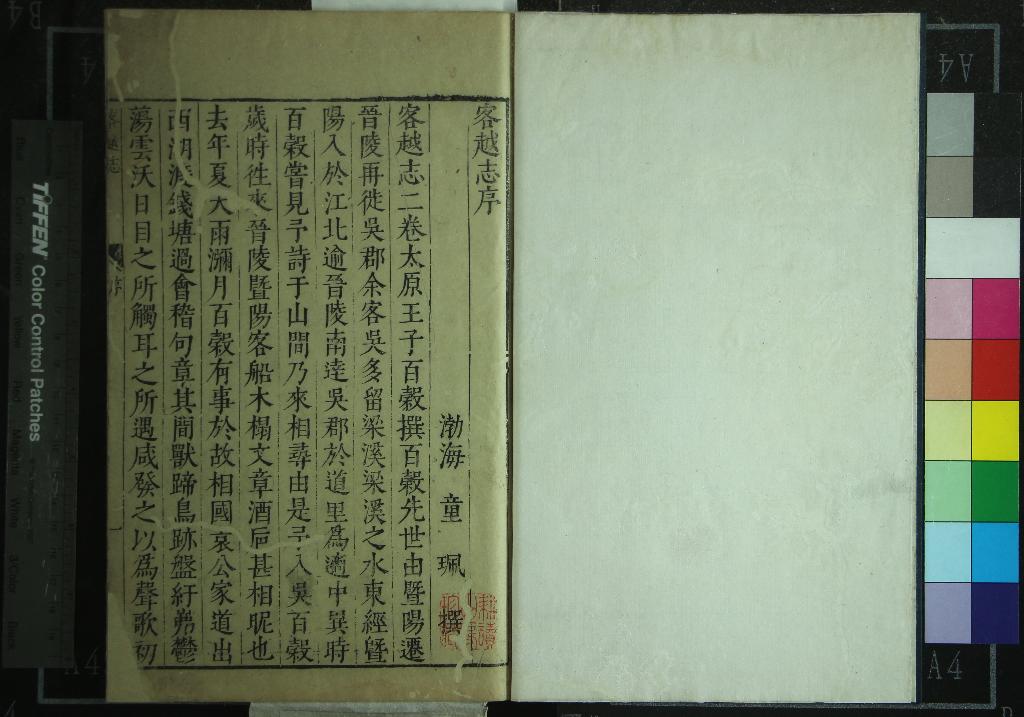 客越志序
渤海童珮撰
客越志二卷太原王子百穀撰百穀先世由暨陽遷
晉陵再徙吳郡余客吳多留梁溪梁溪之水東經暨
陽入於江北逾晉陵南逹吳郡於道里為適中異時
百穀嘗見予詩于山間乃來相尋由是予入吳百穀
歲時徃來晉陵暨陽客船木榻文章酒巵甚相昵也
去年夏大雨瀰月百穀有事於故相國袁公家道出
西湖渡錢塘過會稽句章其間獸蹄鳥跡盤紆岪鬱
蕩雲沃日目之所觸耳之所遇咸發之以為聲歌初
客越志
序
一
TIFFEN Color Control Patches
A4
A4
A4
A4